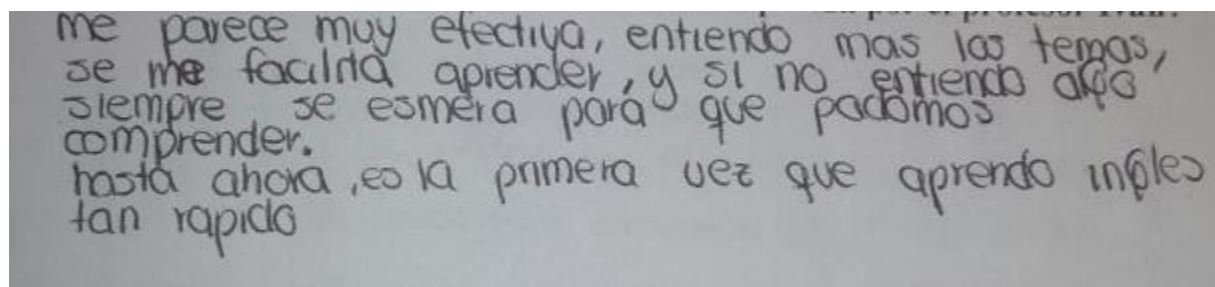 por el profesor
me parece muy efectiva, entiendo mas los temas,
se me facilita aprender, y si no entiendo algo
siempre se esmera para que podamos
comprender.
hasta ahora, es la primera vez que aprendo ingles
tan rapido